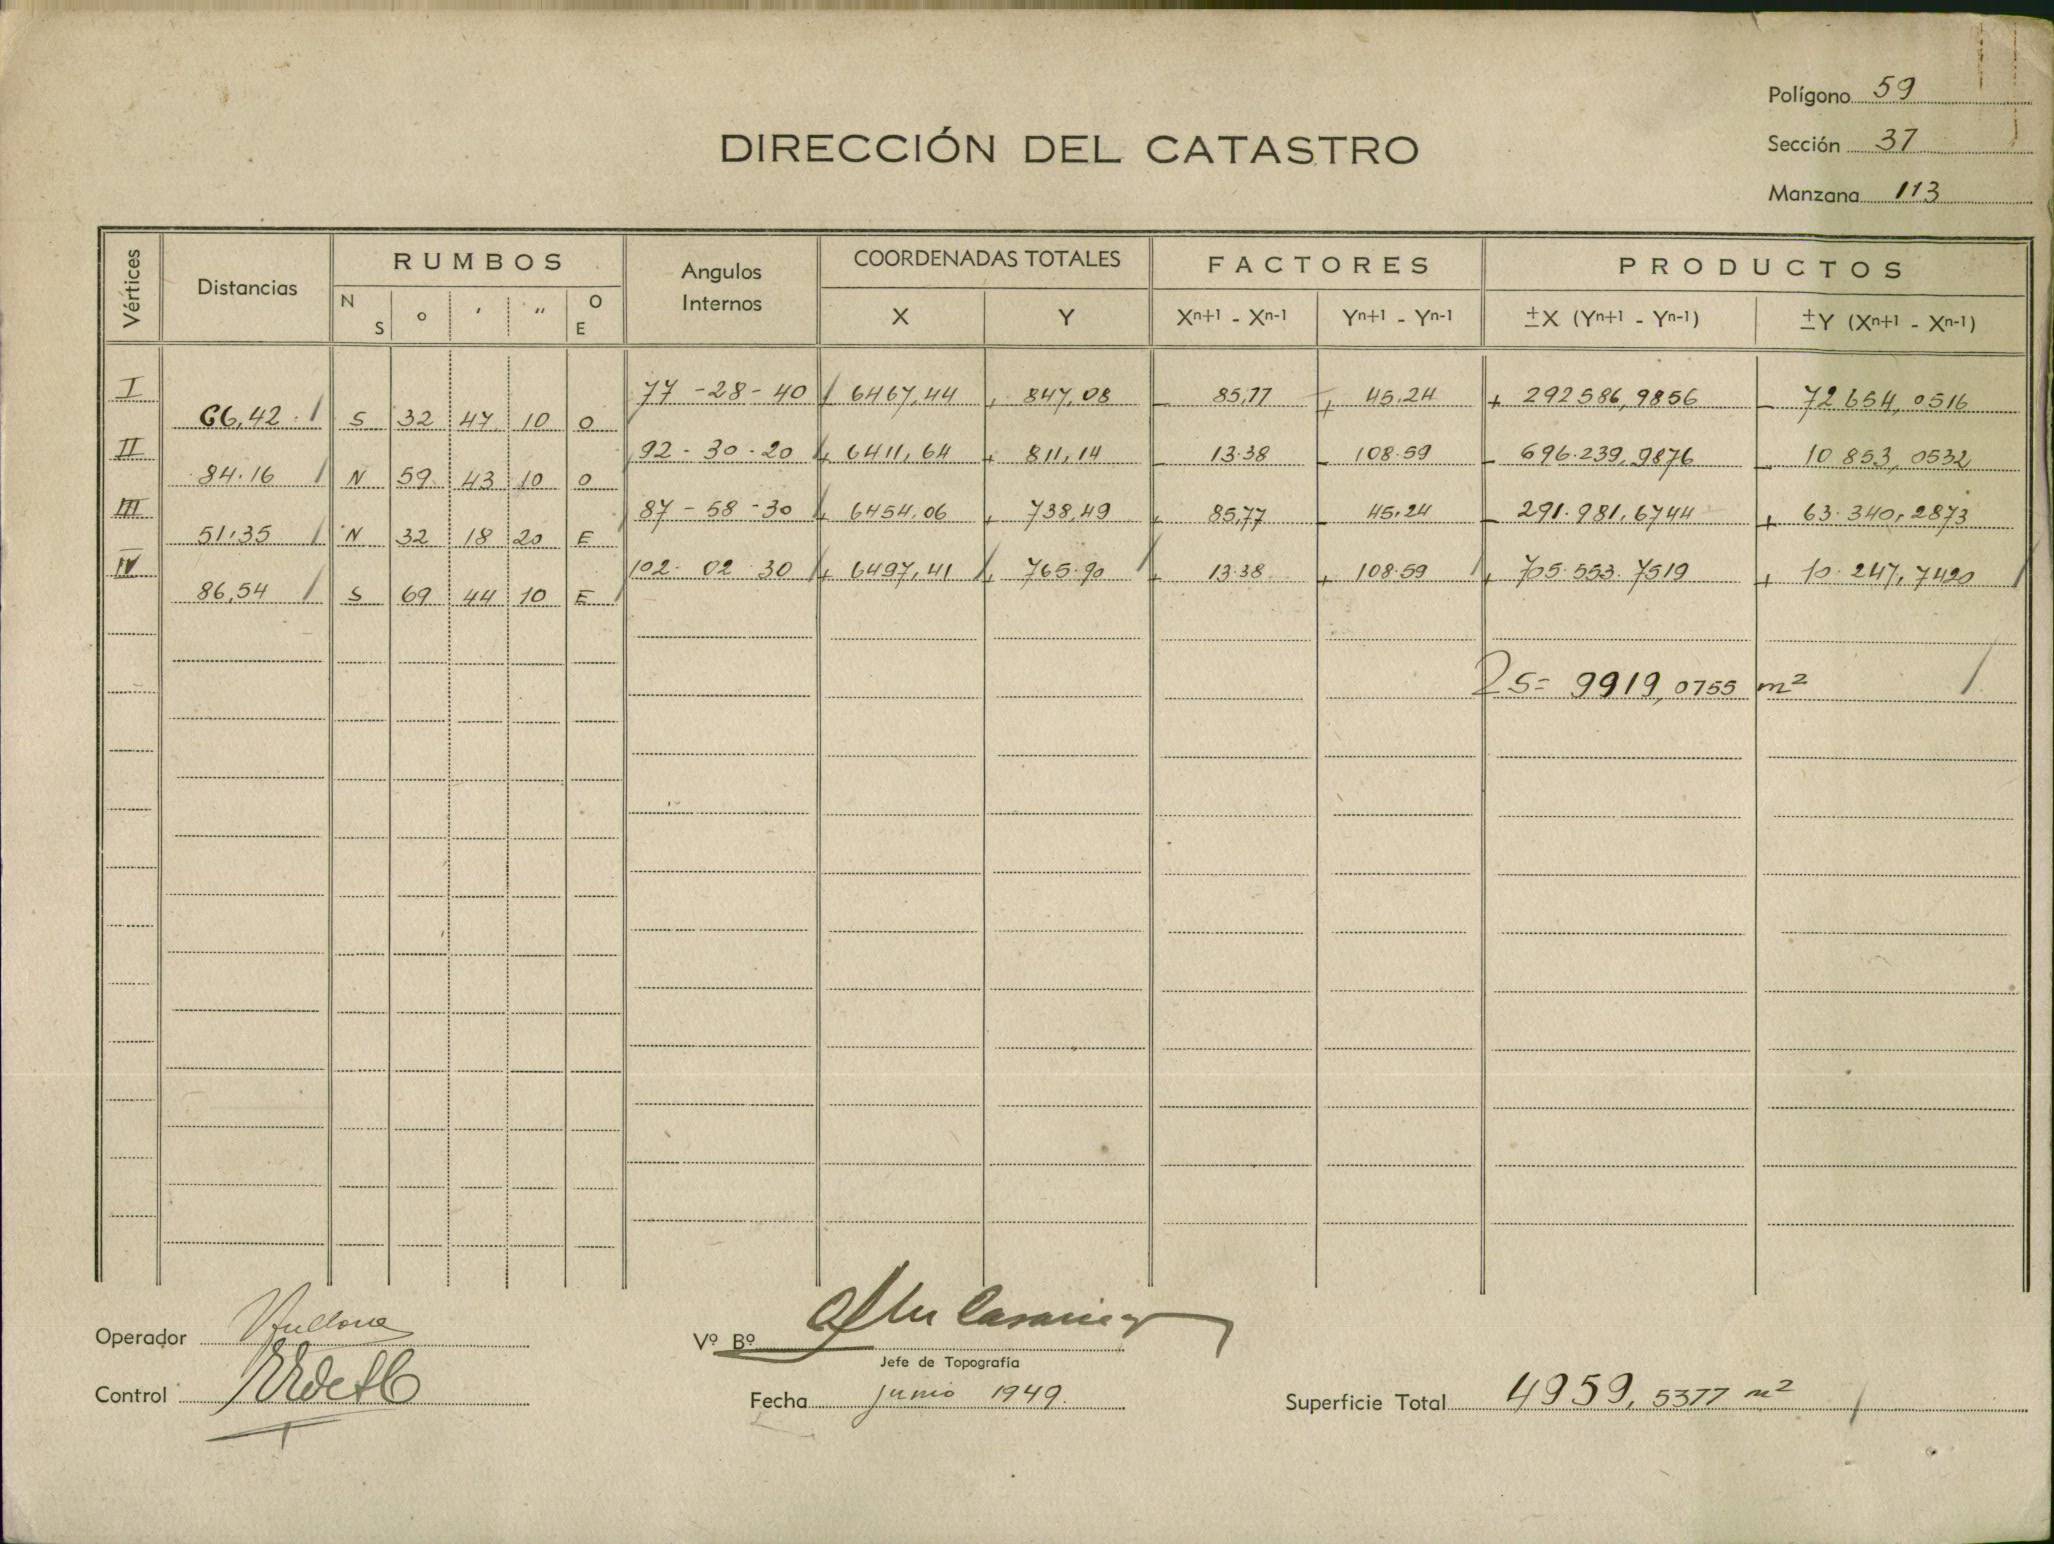 Polígono 59
DIRECCIÓN DEL CATASTRO
Sección 37
Manzana 113
Vértices Distancias RUMBOS Angulos Internos COORDENADAS TOTALES FACTORES PRODUCTOS
N S o ′ ″ O E X Y Xⁿ⁺¹ - Xⁿ⁻¹ Yⁿ⁺¹ - Yⁿ⁻¹ ±X (Yⁿ⁺¹ - Yⁿ⁻¹) ±Y (Xⁿ⁺¹ - Xⁿ⁻¹)
I 77 - 28 - 40 + 6467,44 + 847,08 - 85,77 + 45.24 + 292586,9856 - 72654,0516
66,42 S 32 47 10 O
II 92 - 30 - 20 + 6411,64 + 811,14 - 13.38 - 108.59 - 696.239,9876 - 10 853,0532
84.16 N 59 43 10 O
III 87 - 58 - 30 + 6454,06 + 738,49 + 85,77 - 45,24 - 291.981,6744 + 63.340,2873
51,35 N 32 18 20 E
IV 102 - 02 30 + 6497,41 + 765.90 + 13.38 + 108.59 + 705.553.7519 + 10.247,7420
86,54 S 69 44 10 E
2S= 9919,0755 m²
Operador
Vº Bº
Jefe de Topografía
Control
Fecha junio 1949.
Superficie Total 4959,5377 m²